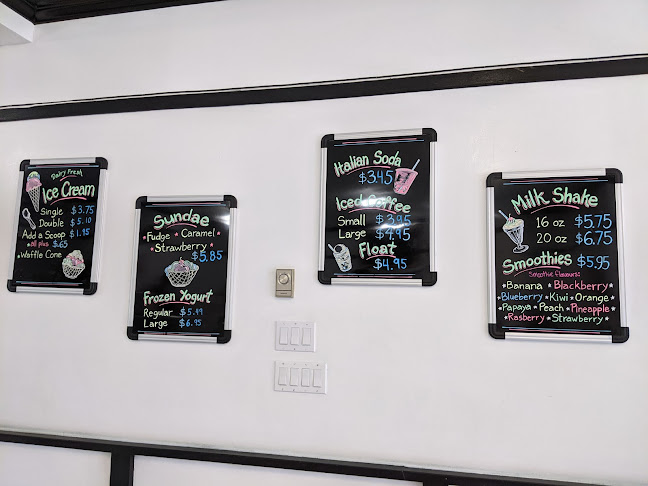 Dairy Fresh
Ice Cream
Single $3.75
Double $5.10
Add a Scoop $1.95
*all plus $.65
*Waffle Cone
Sundae
*Fudge *Caramel
*Strawberry
$5.85
Frozen Yogurt
Regular $5.49
Large $6.95
Italian Soda
$3.45
Iced Coffee
Small $3.95
Large $4.95
Float
$4.95
Milk Shake
16 oz $5.75
20 oz $6.75
Smoothies $5.95
Smoothie flavours:
*Banana *Blackberry
*Blueberry *Kiwi *Orange
*Papaya *Peach *Pineapple
*Rasberry *Strawberry